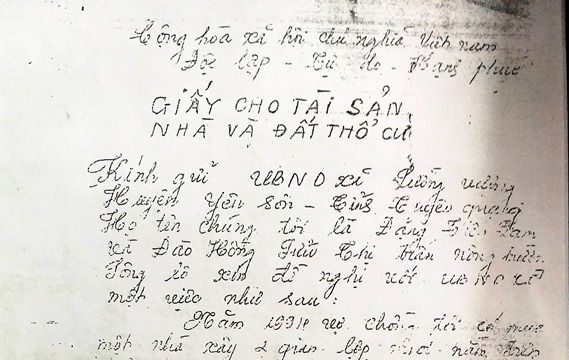 Cộng hòa xã hội chủ nghĩa Việt nam
Độc lập - Tự do - Hạnh phúc
GIẤY CHO TÀI SẢN,
NHÀ VÀ ĐẤT THỔ CƯ
Kính gửi UBND xã Lưỡng vượng
Huyện Yên sơn - Tỉnh Tuyên quang
Họ tên chúng tôi là Đặng
và Đào Hồng
xin đề nghị với UBND xã
một việc như sau:
Năm 1991 vợ chồng tôi có mua
một nhà xây 2 gian lợp năm